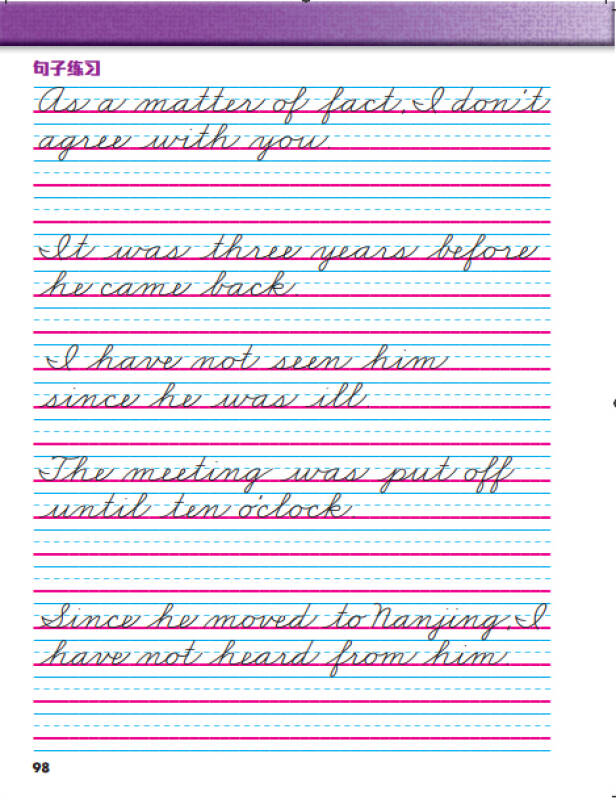 句子练习
As a matter of fact, I don't
agree with you.
It was three years before
he came back.
I have not seen him
since he was ill.
The meeting was put off
until ten o'clock.
Since he moved to Nanjing, I
have not heard from him.
98